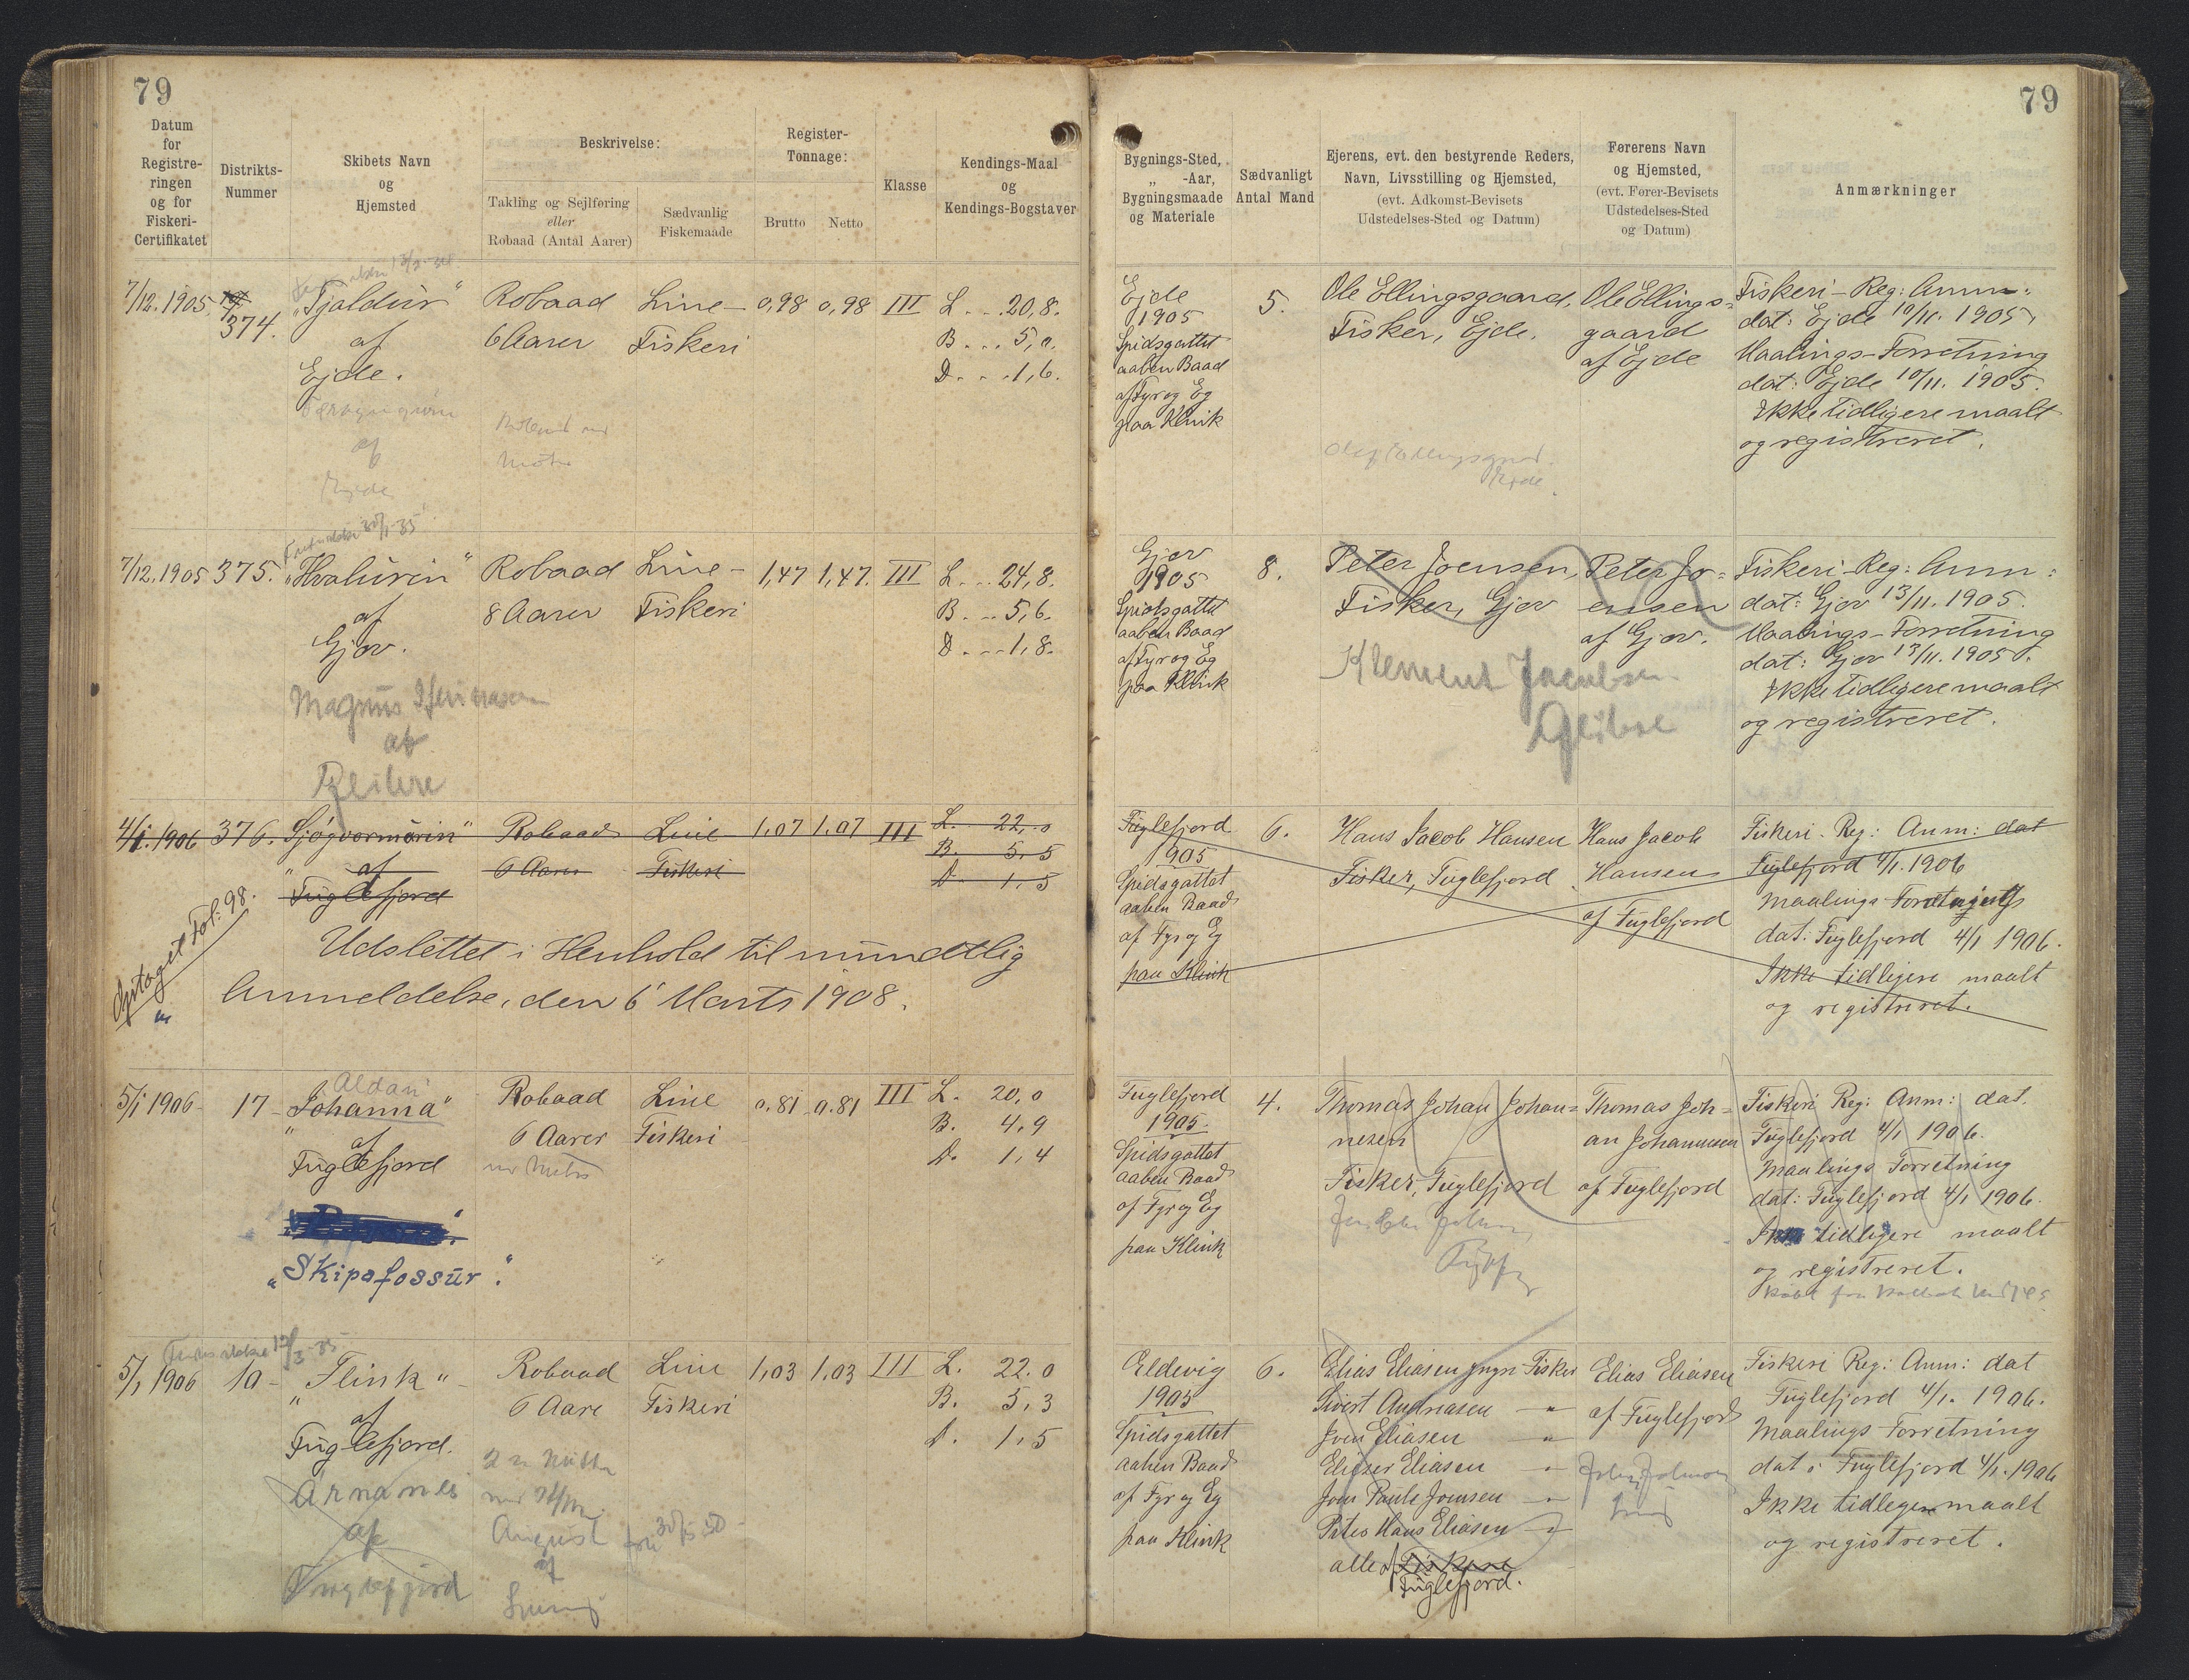 79
79
Datum
for
Registre-
ringen
og for
Fiskeri-
Certifikatet
Distrikts-
Nummer
Skibets Navn
og
Hjemsted
Beskrivelse:
Takling og Sejlføring
eller
Robaad (Antal Aarer)
Sædvanlig
Fiskemaade
Register-
Tonnage:
Brutto
Netto
Klasse
Kendings-Maal
og
Kendings-Bogstaver
Bygnings-Sted,
„ -Aar,
Bygningsmaade
og Materiale
Sædvanligt
Antal Mand
Ejerens, evt. den bestyrende Reders,
Navn, Livsstilling og Hjemsted,
(evt. Adkomst-Bevisets
Udstedelses-Sted og Datum)
Førerens Navn
og Hjemsted,
(evt. Fører-Bevisets
Udstedelses-Sted
og Datum)
Anmærkninger
7/12. 1905.
374.
„Tjaldur"
af
Ejde.
af
Ejde
Robaad
6 Aarer
Line-
Fiskeri
0,98 0,98 III
L...20,8.
B...5,0.
D...1,6.
Ejde
1905
Spidsgattet
aaben Baad
af Fyr og Eg
paa Klink
5.
Ole Ellingsgaard,
Fisker, Ejde.
Ole Ellings-
gaard
af Ejde
Fiskeri-Reg: Anm:
dat: Ejde 10/11. 1905.
Maalings-Forretning
dat: Ejde 10/11. 1905.
Ikke tidligere maalt
og registreret.
7/12. 1905
375.
„Hvalurin"
af
Gjov.
Magnus
af
Robaad
8 Aarer
Line-
Fiskeri
1,47 1,47. III
L...24,8.
B...5,6.
D...1,8.
Gjov
1905
Spidsgattet
aaben Baad
af Fyr og Eg
paa Klink
8.
Peter Joensen,
Fisker, Gjov
Klement Jacobsen
Peter Jo-
ensen
af Gjov.
Fiskeri-Reg: Anm:
dat: Gjov 13/11. 1905.
Maalings-Forretning
dat: Gjov 13/11. 1905.
Ikke tidligere maalt
og registreret.
4/1. 1906
376.
„Sjógvormurin"
af
Fuglefjord
Robaad
6 Aarer
Line
Fiskeri
1,07 1,07 III
L. 22,0
B. 5,5
D. 1,5
Optaget Fol: 98.
Udslettet i Henhold til mundtlig
Anmeldelse, den 6' Marts 1908.
Fuglefjord
1905
Spidsgattet
aaben Baad
af Fyr og Eg
paa Klink
6.
Hans Jacob Hansen
Fisker, Fuglefjord
Hans Jacob
Hansen
af Fuglefjord
Fiskeri-Reg: Anm: dat
Fuglefjord 4/1. 1906
Maalings-Forretning
dat: Fuglefjord 4/1 1906.
Ikke tidligere maalt
og registreret.
5/1 1906
17
Aldan
„Johanna"
af
Fuglefjord
„Skipafossur".
Robaad
6 Aarer
Line
Fiskeri
0.81 0.81 III
L. 20,0
B. 4,9
D. 1,4
Fuglefjord
1905.
Spidsgattet
aaben Baad
af Fyr og Eg
paa Klink
4.
Thomas Johan Johan-
nesen
Fisker, Fuglefjord
Thomas Joh-
an Johannesen
af Fuglefjord
Fiskeri Reg: Anm: dat.
Fuglefjord 4/1 1906.
Maalings Forretning
dat: Fuglefjord 4/1 1906.
Ikke tidligere maalt
og registreret.
5/1 1906
10
„Flink"
af
Fuglefjord.
Arnanes
af
Fuglefjord
Robaad
6 Aare
August
af
Line
Fiskeri
1,03 1,03 III
L. 22.0
B. 5,3
D. 1,5
Eldevig
1905
Spidsgattet
aaben Baad
af Fyr og Eg
paa Klink
6.
Elias Eliasen yngre Fisker
Sivert Andreasen "
Joen Eliasen "
Elieser Eliasen "
Joen Paule Joensen "
Peter Hans Eliasen "
alle af Fiskere
Fuglefjord.
Elias Eliasen
af Fuglefjord
Fiskeri Reg: Anm: dat
Fuglefjord 4/1. 1906.
Maalings Forretning
dat: Fuglefjord 4/1. 1906
Ikke tidligere maalt
og registreret.